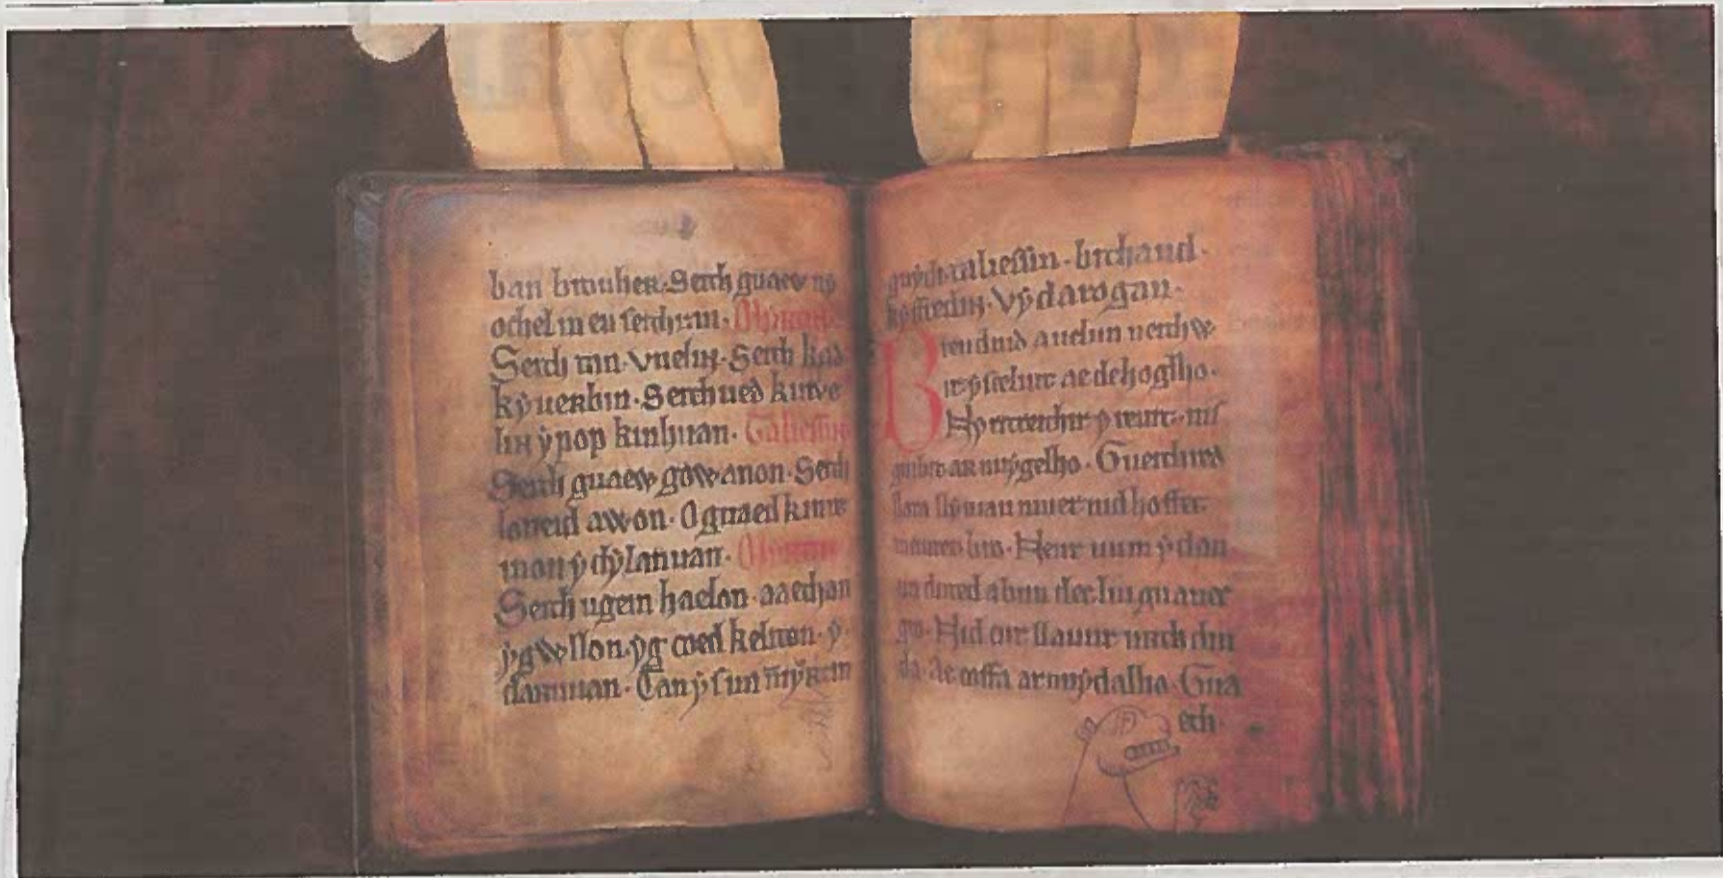 ban brouher. Seith guaew ny
ochel in eu seithran. Myrtin.
Seith tan. vuelin. Seith kad
kyuerbin. Seithued kinve
lin y pop kinhuan. Taliessin.
Seith guaew gowanon. Seith
loneid awon. O guaed kinrei
non y dylanuan. Myrtin.
Seith ugein haelon. aaethan
ygwllon. yg coed keliton. y
daruuan. Can ys mi myrtin
guydi taliessin. bithaud.
kyffredin. Vy darogan.
Breuduid auelun neithw
ir ys celuit ae dehoglho.
Ny ritreithir y reuit. nis
guibit ar nuy gelho. Gueithred
llara llyuiau niuer nid hoffet
bro. Neur uum y dan
un duted abun dec liu guanec
gro. Nid oet llauur urth din
da. Ae coffa ar nuy dalho. Gua
eth.